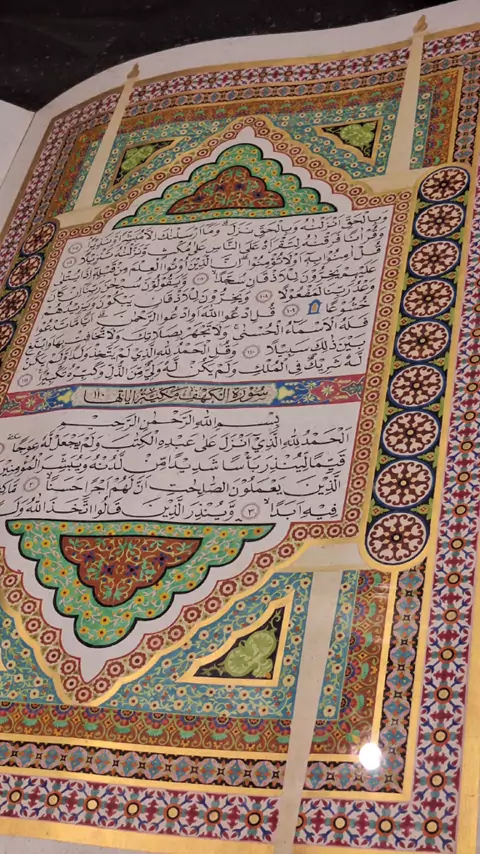 وَبِالْحَقِّ اَنْزَلْنَاهُ وَبِالْحَقِّ نَزَلَ وَمَا اَرْسَلْنَاكَ اِلَّا مُبَشِّرًا وَنَذِيرًا ١٠٥
وَقُرْاٰنًا فَرَقْنَاهُ لِتَقْرَاَهُ عَلَى النَّاسِ عَلٰى مُكْثٍ وَنَزَّلْنَاهُ تَنْزِيلًا
قُلْ اٰمِنُوا بِهِ اَوْ لَا تُؤْمِنُوا اِنَّ الَّذِينَ اُوتُوا الْعِلْمَ مِنْ قَبْلِهِ اِذَا يُتْلٰى
عَلَيْهِمْ يَخِرُّونَ لِلْاَذْقَانِ سُجَّدًا ١٠٧ وَيَقُولُونَ سُبْحَانَ رَبِّنَا اِنْ كَانَ
وَعْدُ رَبِّنَا لَمَفْعُولًا ١٠٨ وَيَخِرُّونَ لِلْاَذْقَانِ يَبْكُونَ وَيَزِيدُهُمْ
خُشُوعًا ١٠٩ قُلِ ادْعُوا اللّٰهَ اَوِ ادْعُوا الرَّحْمٰنَ اَيًّا مَا تَدْعُوا
فَلَهُ الْاَسْمَاءُ الْحُسْنٰى وَلَا تَجْهَرْ بِصَلَاتِكَ وَلَا تُخَافِتْ بِهَا وَابْتَغِ
بَيْنَ ذٰلِكَ سَبِيلًا ١١٠ وَقُلِ الْحَمْدُ لِلّٰهِ الَّذِي لَمْ يَتَّخِذْ وَلَدًا وَلَمْ يَكُنْ
لَهُ شَرِيكٌ فِي الْمُلْكِ وَلَمْ يَكُنْ لَهُ وَلِيٌّ مِنَ الذُّلِّ وَكَبِّرْهُ تَكْبِيرًا ١١١
سُورَةُ الْكَهْفِ مَكِّيَّةٌ وَاٰيَاتُهَا ١١٠
بِسْمِ اللّٰهِ الرَّحْمٰنِ الرَّحِيمِ
اَلْحَمْدُ لِلّٰهِ الَّذِي اَنْزَلَ عَلٰى عَبْدِهِ الْكِتٰبَ وَلَمْ يَجْعَلْ لَهُ عِوَجًا
قَيِّمًا لِيُنْذِرَ بَاْسًا شَدِيدًا مِنْ لَدُنْهُ وَيُبَشِّرَ الْمُؤْمِنِينَ
الَّذِينَ يَعْمَلُونَ الصَّالِحَاتِ اَنَّ لَهُمْ اَجْرًا حَسَنًا ٢ مَاكِثِينَ
فِيهِ اَبَدًا ٣ وَيُنْذِرَ الَّذِينَ قَالُوا اتَّخَذَ اللّٰهُ وَلَدًا